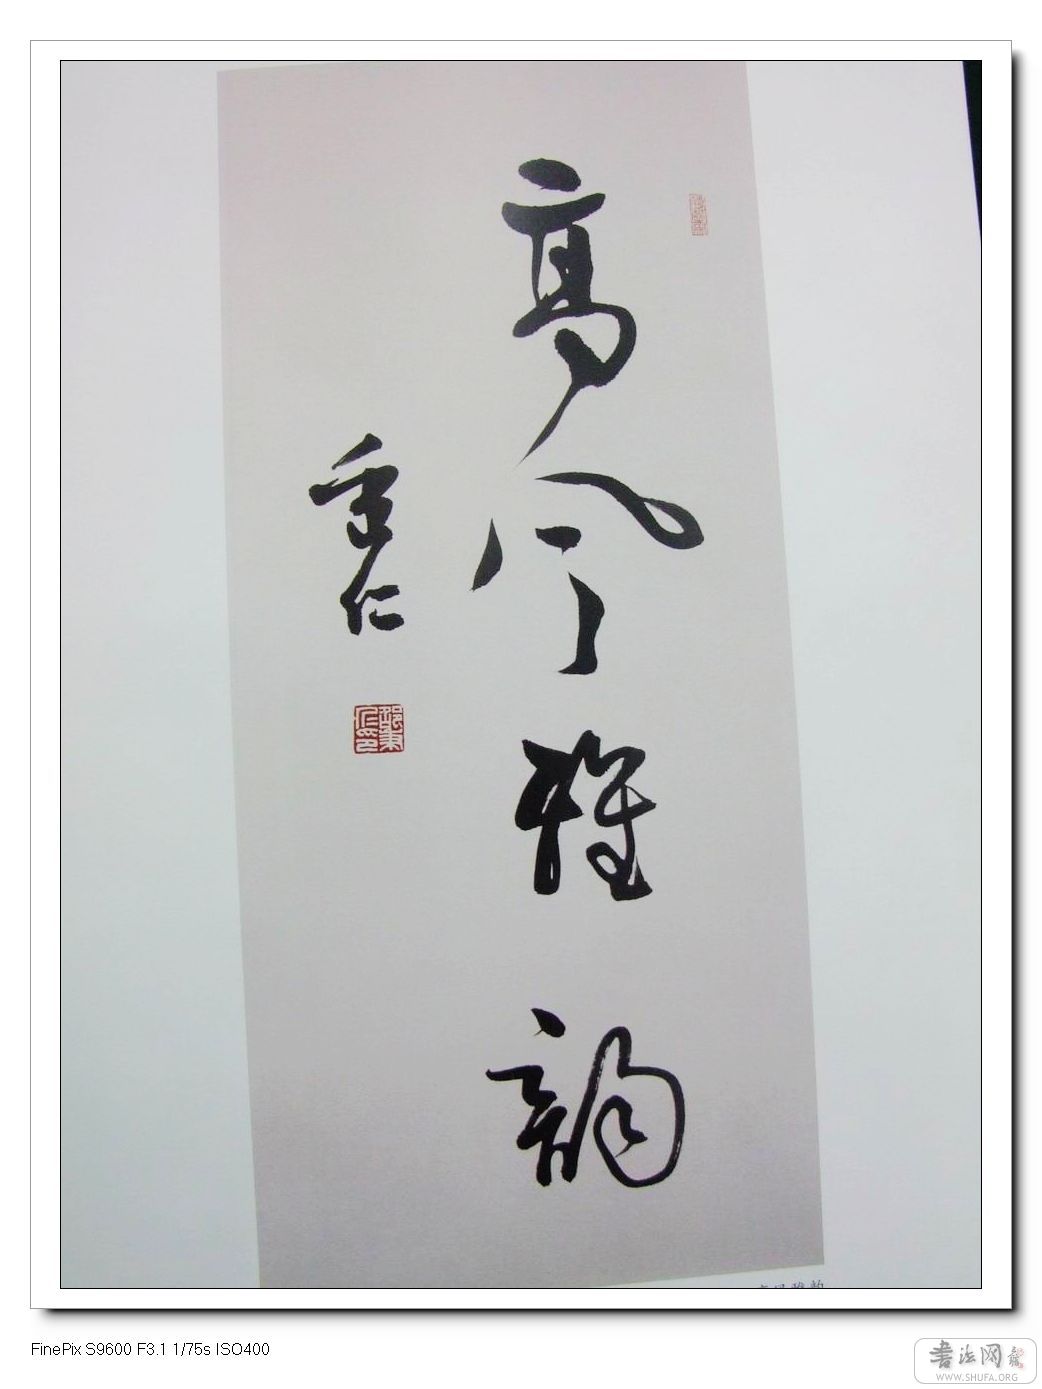 高风雅韵
秉仁
FinePix S9600 F3.1 1/75s ISO400
书法网
WWW.SHUFA.ORG